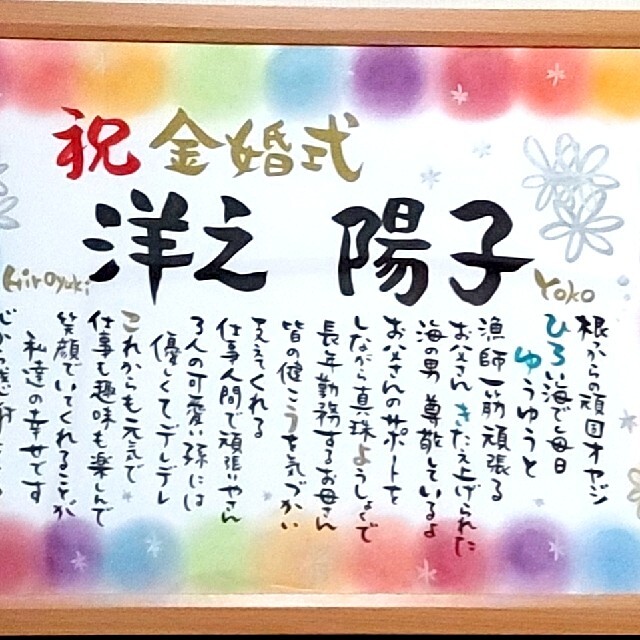 祝 金婚式
洋之 陽子
Hiroyuki
Yoko
根っからの頑固オヤジ
ひろい海で毎日
ゆうゆうと
漁師一筋頑張る
お父さん きたえ上げられた
海の男 尊敬しているよ
お父さんのサポートを
しながら真珠ようしょくで
長年勤務するお母さん
皆の健こうを気づかい
支えてくれる
仕事人間で頑張りやさん
3人の可愛い孫には
優しくてデレデレ
これからも元気で
仕事も趣味も楽しんで
笑顔でいてくれることが
私達の幸せです